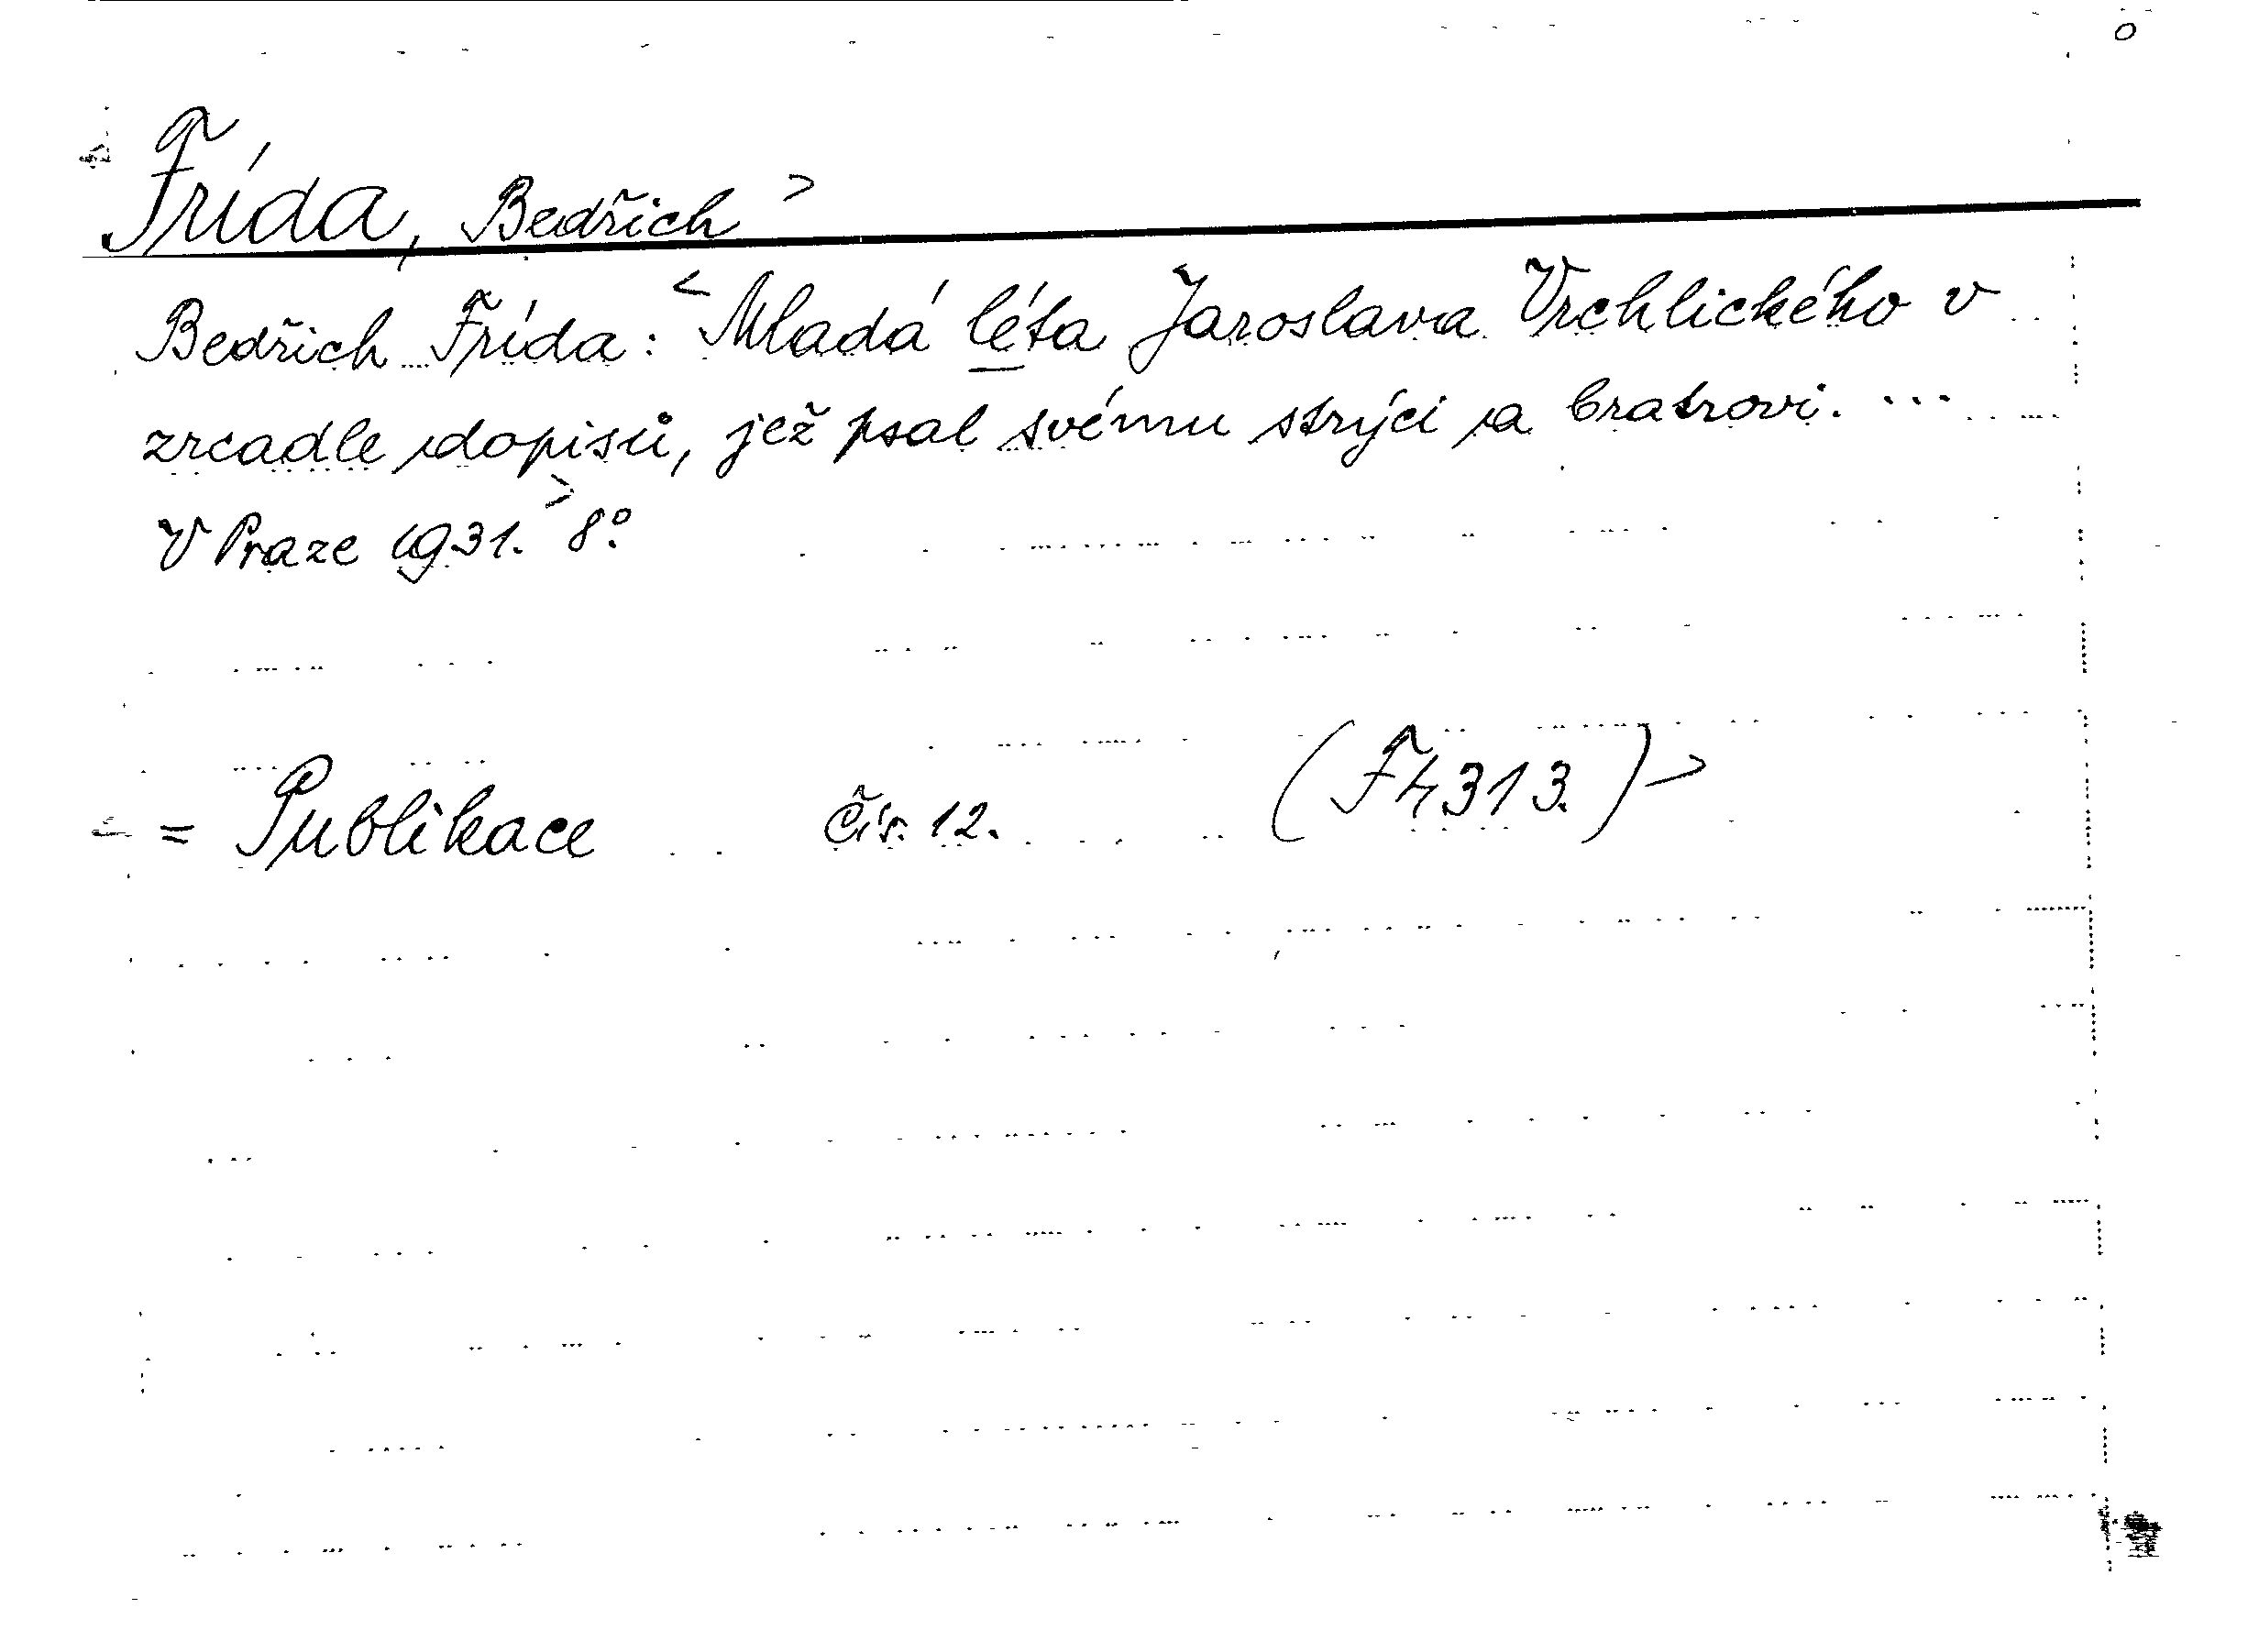 Frída, Bedřich >
Bedřich Frída: < Mladá léta Jaroslava Vrchlického v
zrcadle dopisů, jež psal svému strýci a bratrovi. ...
V Praze 1931. > 8°.
= Publikace čís. 12. (F 4313.) >